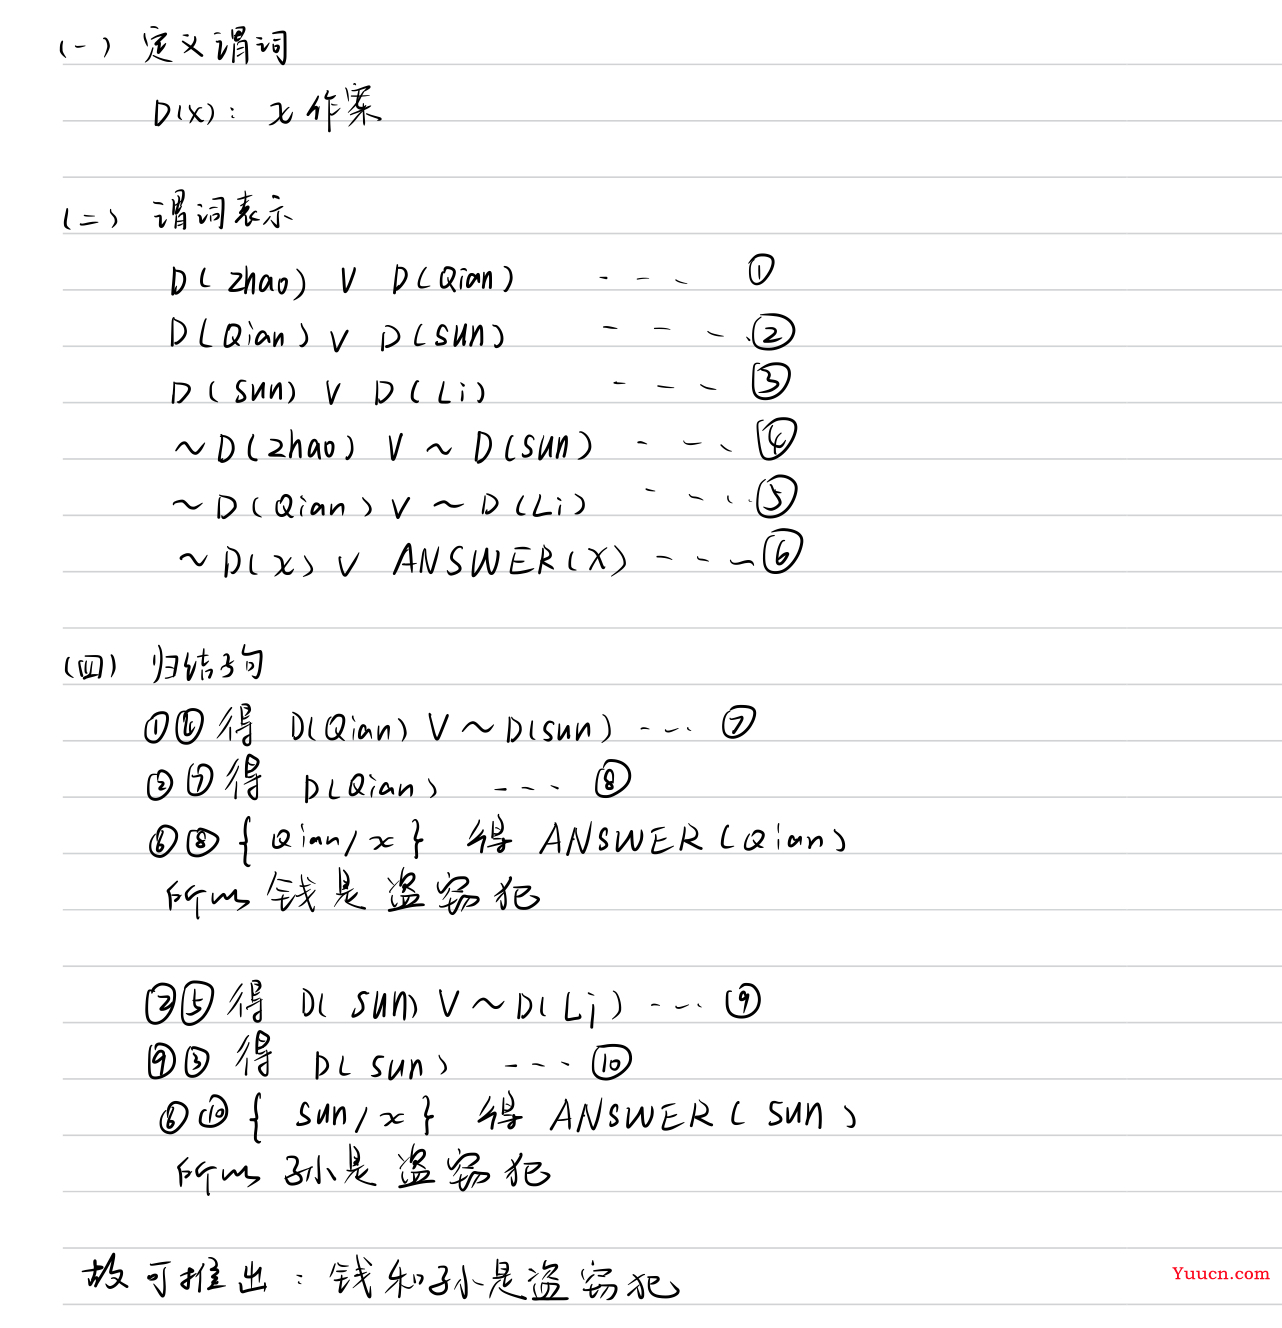 (一) 定义谓词
D(X): x 作案
(二) 谓词表示
D(zhao) ∨ D(Qian) --- ①
D(Qian) ∨ D(sun) ---- ②
D(sun) ∨ D(Li) --- ③
~D(zhao) ∨ ~D(sun) --- ④
~D(Qian) ∨ ~D(Li) ---- ⑤
~D(x) ∨ ANSWER(X) --- ⑥
(四) 归结子句
①④得 D(Qian) ∨ ~D(sun) --- ⑦
②⑦得 D(Qian) --- ⑧
⑥⑧{Qian/x} 得 ANSWER(Qian)
所以 钱是盗窃犯
②⑤得 D(sun) ∨ ~D(Li) --- ⑨
⑨③得 D(sun) --- ⑩
⑥⑩{sun/x} 得 ANSWER(sun)
所以 孙是盗窃犯
故可推出: 钱和孙是盗窃犯
Yuucn.com